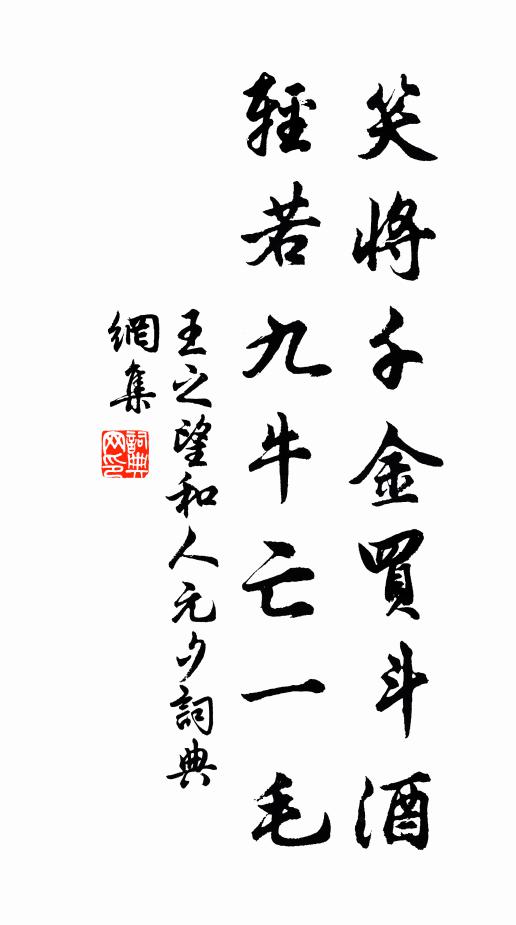 笑將千金買斗酒
輕若九牛亡一毛
王之望和人元夕詞典
網集
詞典
网印